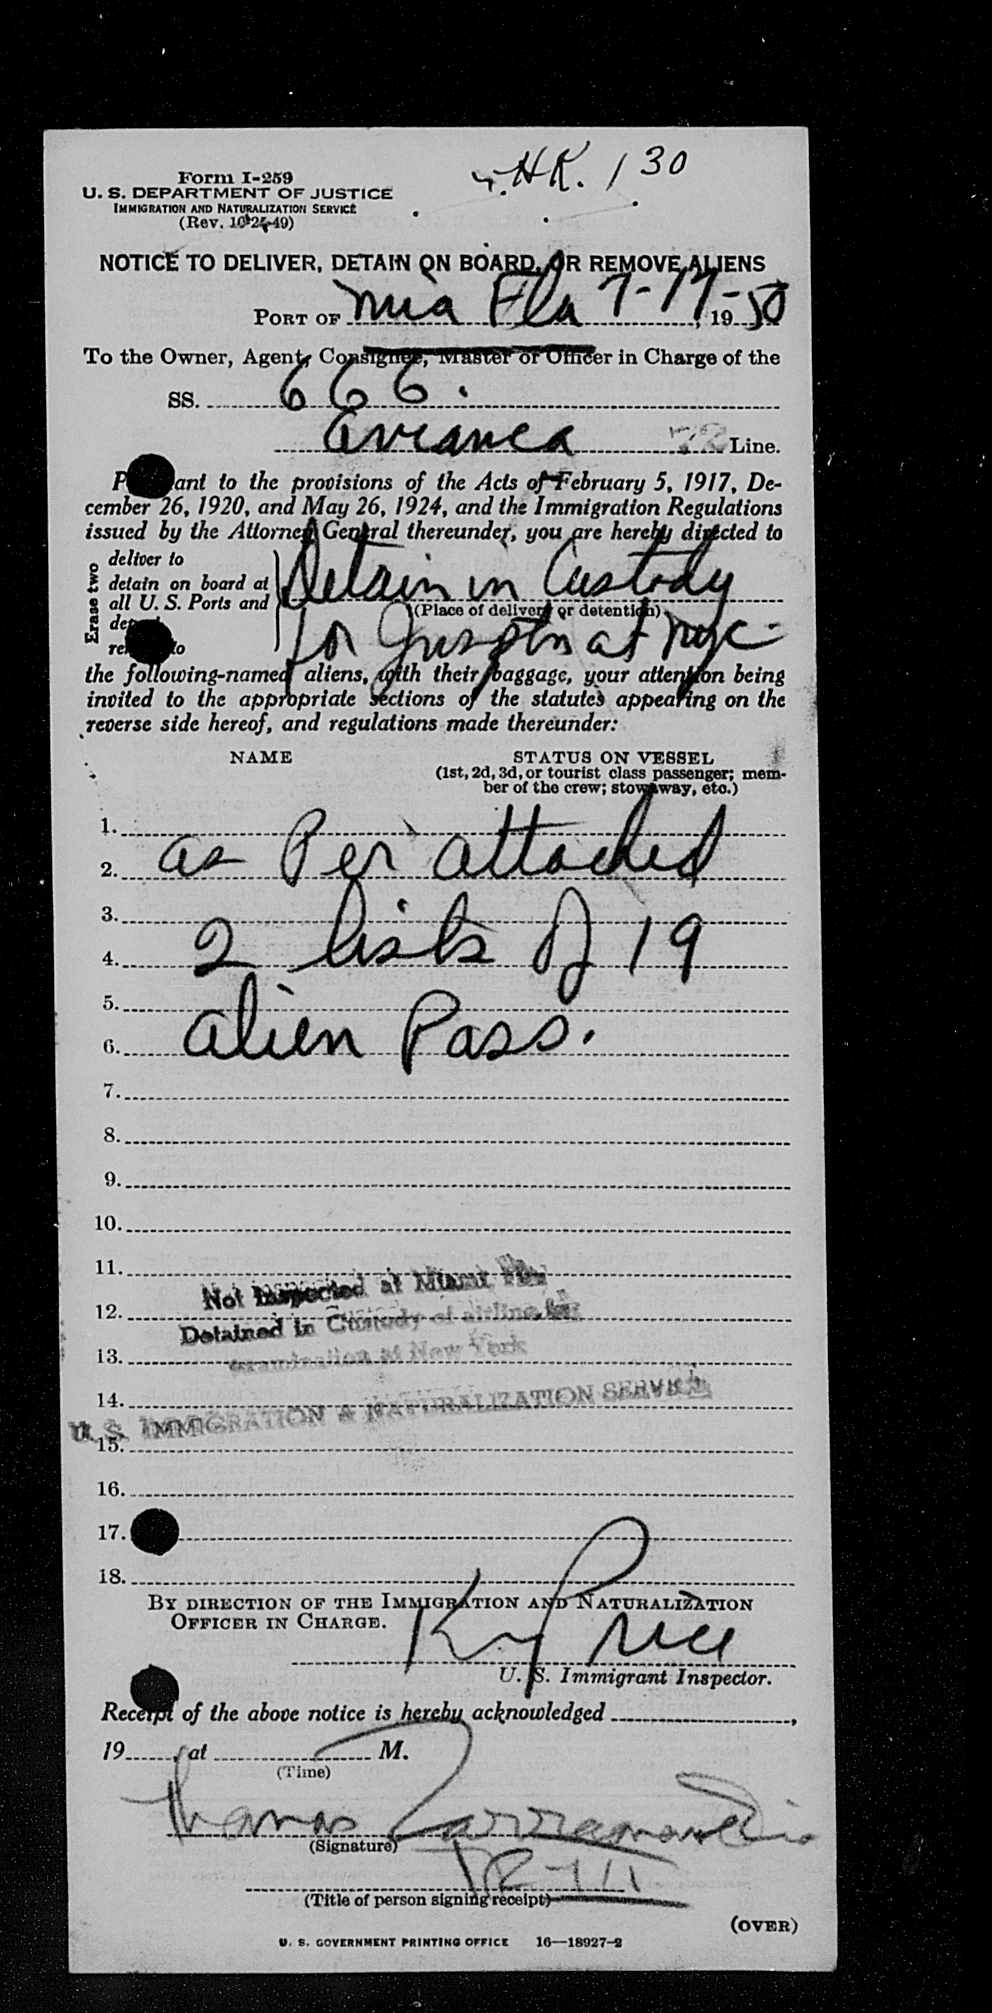 HK. 130
Form I-259
U. S. DEPARTMENT OF JUSTICE
IMMIGRATION AND NATURALIZATION SERVICE
(Rev. 10-24-49)
NOTICE TO DELIVER, DETAIN ON BOARD, OR REMOVE ALIENS
PORT OF Mia Fla 7-17-, 1950
To the Owner, Agent, Consignee, Master or Officer in Charge of the
SS. 666.
Avianca 72 Line.
ant to the provisions of the Acts of February 5, 1917, De-
cember 26, 1920, and May 26, 1924, and the Immigration Regulations
issued by the Attorney General thereunder, you are hereby directed to
Erase two
deliver to
detain on board at
all U. S. Ports and
Detain in Custody
(Place of delivery or detention)
for Inspctn at nyc-
the following-named aliens, with their baggage, your attention being
invited to the appropriate sections of the statutes appearing on the
reverse side hereof, and regulations made thereunder:
NAME STATUS ON VESSEL
(1st, 2d, 3d, or tourist class passenger; mem-
ber of the crew; stowaway, etc.)
1.
2. as Per attached
3.
4. 2 lists of 19
5.
6. alien Pass.
7.
8.
9.
10.
11.
Not Inspected at Miami Fla
12.
Detained in Custody of airline for
13. examination at New York
14.
U. S. IMMIGRATION & NATURALIZATION SERVICE
15.
16.
17.
18.
BY DIRECTION OF THE IMMIGRATION AND NATURALIZATION
OFFICER IN CHARGE.
Price
U. S. Immigrant Inspector.
Receipt of the above notice is hereby acknowledged ,
19 , at M.
(Time)
Thomas
(Signature)
(Title of person signing receipt)
(OVER)
U. S. GOVERNMENT PRINTING OFFICE 16—18927-2